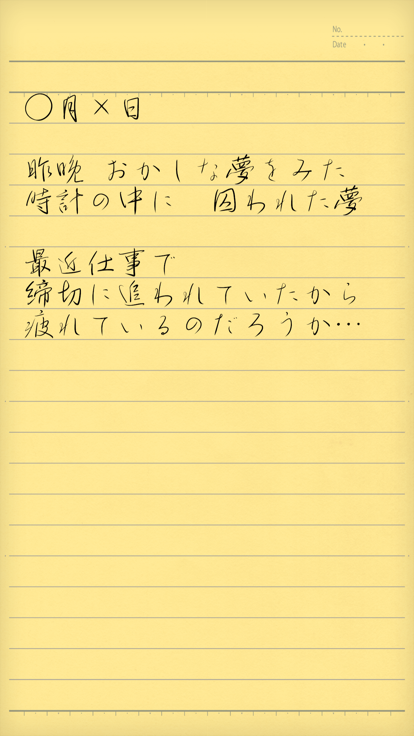 No.
Date ・ ・
○月×日
昨晩 おかしな夢をみた
時計の中に 囚われた夢
最近仕事で
締切に追われていたから
疲れているのだろうか…